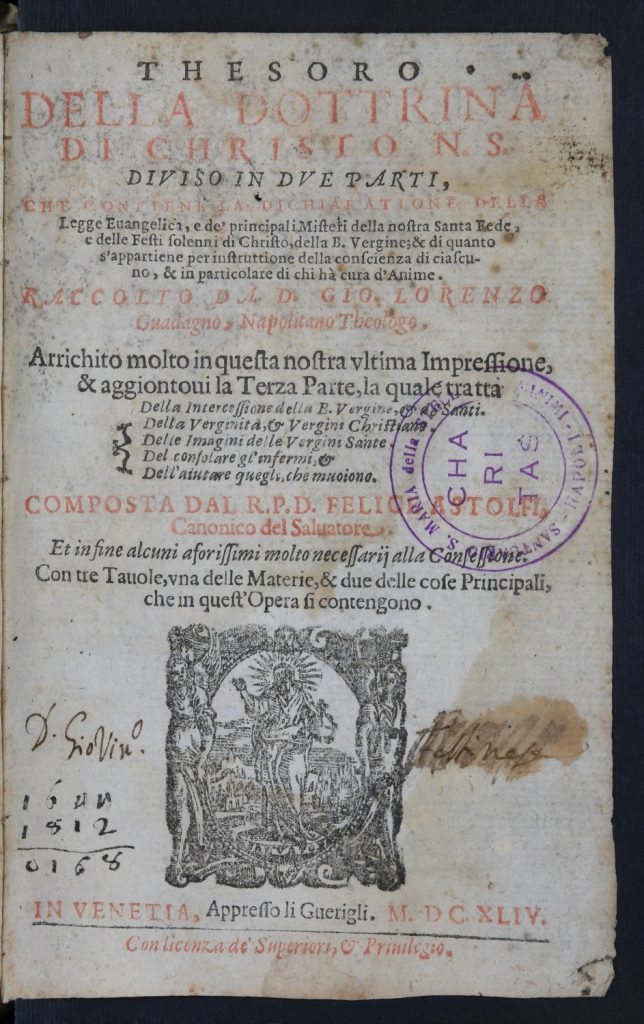 THESORO
DELLA DOTTRINA
DI CHRISTO N. S.
DIVISO IN DVE PARTI,
CHE CONTIENE LA DICHIARATIONE DELLA
Legge Euangelica, e de' principali Misteri della nostra Santa Fede,
e delle Festi solenni di Christo, della B. Vergine; & di quanto
s'appartiene per instruttione della conscienza di ciascu-
no, & in particolare di chi hà cura d'Anime.
RACCOLTO DA D. GIO. LORENZO
Guadagno, Napolitano Theologo.
Arrichito molto in questa nostra vltima Impressione,
& aggiontoui la Terza Parte, la quale tratta
Della Intercessione della B. Vergine, & de' Santi.
Della Verginità, & Vergini Christiane.
Delle Imagini delle Vergini Sante.
Del consolare gl'infermi, &
Dell'aiutare quegli, che muoiono.
COMPOSTA DAL R.P.D. FELICE ASTOLFI,
Canonico del Saluatore.
Et in fine alcuni aforissimi molto necessarij alla Confessione.
Con tre Tauole, vna delle Materie, & due delle cose Principali,
che in quest'Opera si contengono.
S. MARIA della MINIMI - NAPOLI - SANTUARIO
CHA
RI
TAS
D. Gio Vin.o
1644
1812
0168
IN VENETIA, Appresso li Guerigli. M. DC. XLIV.
Con licenza de' Superiori, & Priuilegio.